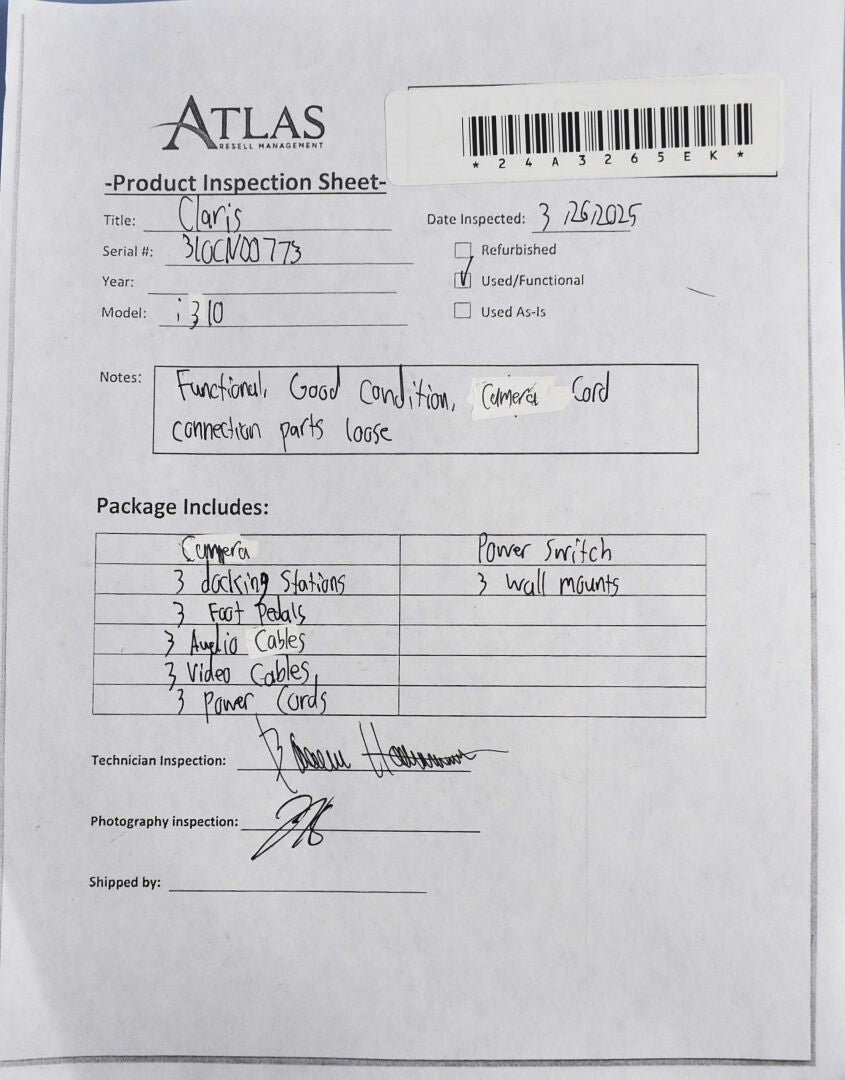 ATLAS
RESELL MANAGEMENT
* 2 4 A 3 2 6 5 E K *
-Product Inspection Sheet-
Title: Claris
Date Inspected: 3/26/2025
Serial #: 310CN00773
Refurbished
Year:
Used/Functional
Model: i310
Used As-Is
Notes: Functional, Good Condition, Camera Cord
connection parts loose
Package Includes:
Camera Power Switch
3 docking Stations 3 wall mounts
3 Foot Pedals
3 Audio Cables
3 Video Cables
3 Power Cords
Technician Inspection:
Photography inspection:
Shipped by: